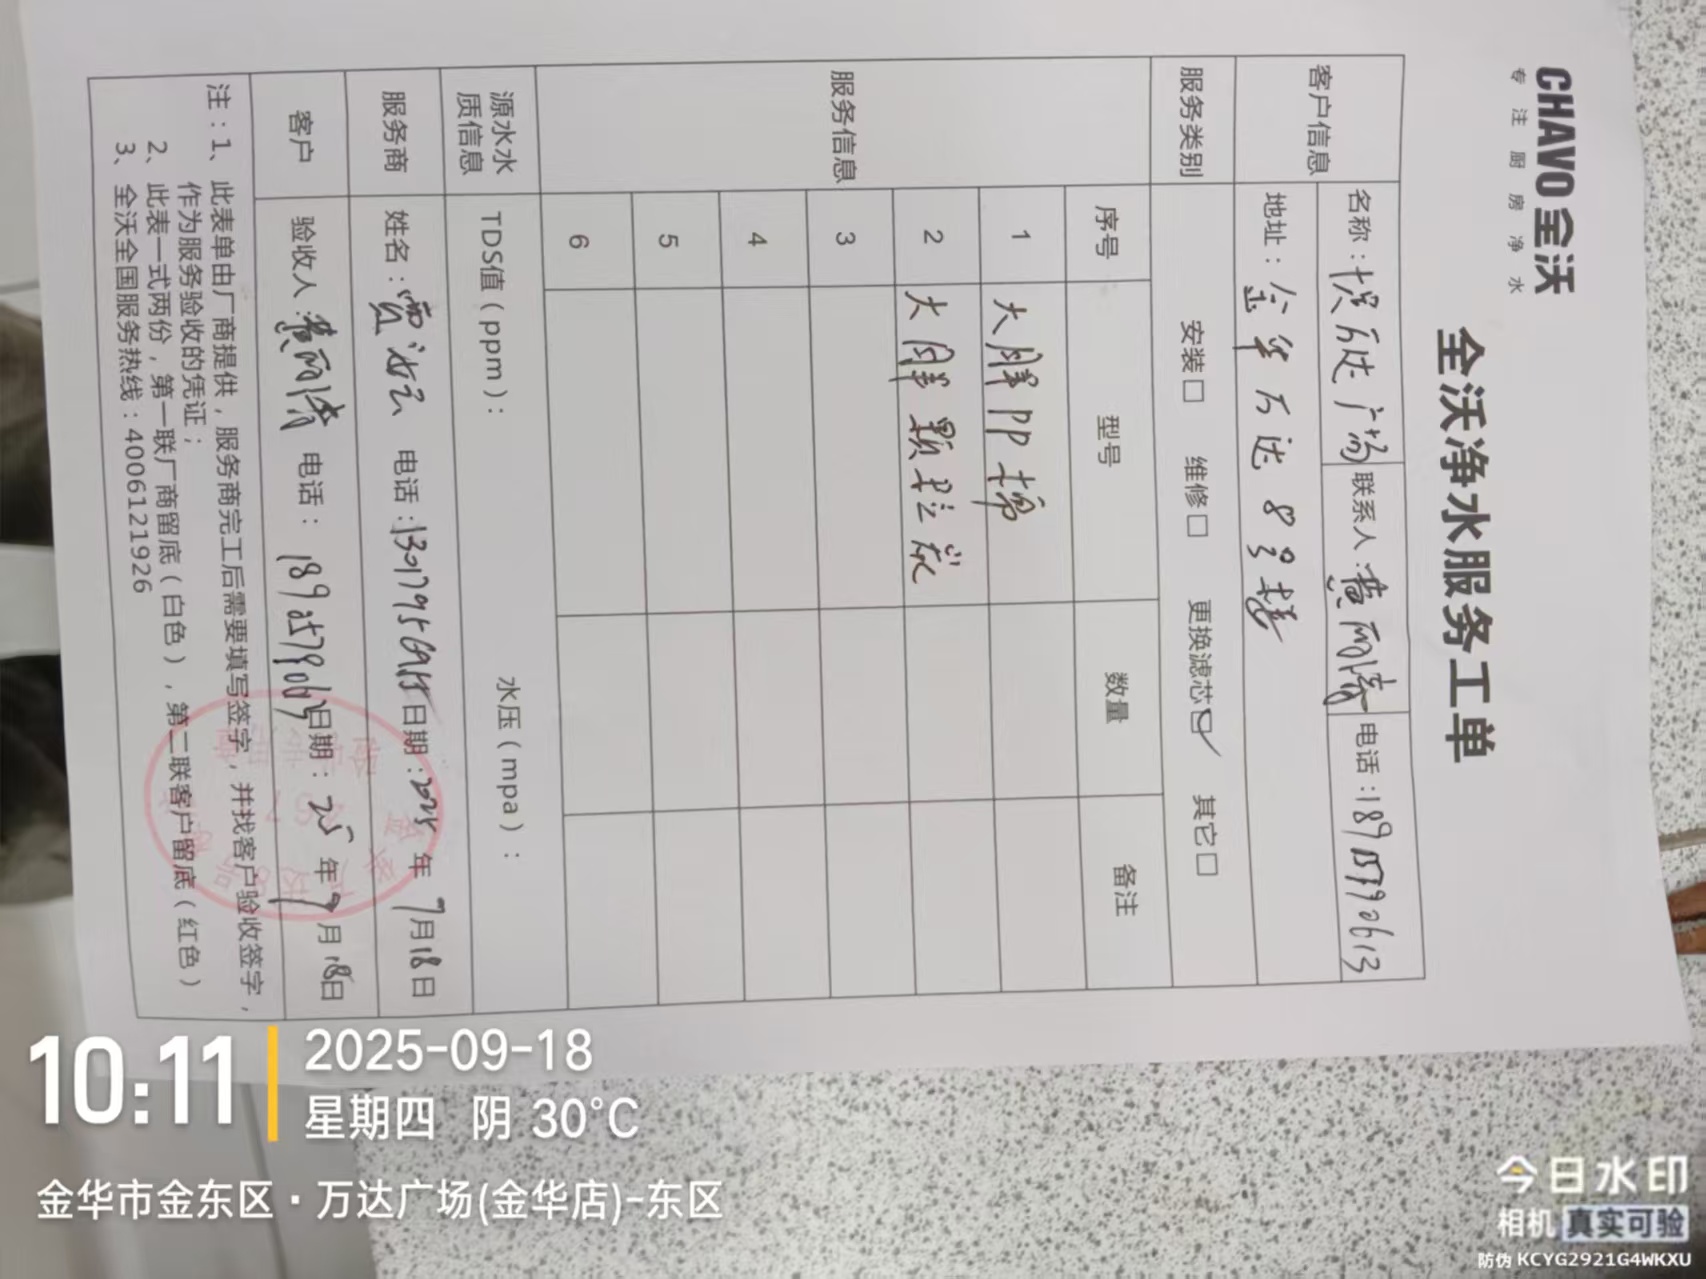 CHAVO全沃
专注厨房净水
全沃净水服务工单
客户信息
名称：万达广场 联系人：黄雨倩 电话：18905790613
地址：金华万达8号楼
服务类别 安装□ 维修□ 更换滤芯☑ 其它□
服务信息
序号 型号 数量 备注
1 大胖PP棉
2 大胖颗粒炭
3
4
5
6
源水水质信息 TDS值（ppm）： 水压（mpa）：
服务商 姓名：贾 电话：13017956915 日期：2025年7月18日
客户 验收人：黄雨倩 电话：18905790613 日期：25年9月18日
注：1、此表单由厂商提供，服务商完工后需要填写签字，并找客户验收签字，
作为服务验收的凭证；
2、此表一式两份，第一联厂商留底（白色），第二联客户留底（红色）
3、全沃全国服务热线：4006121926
10:11
2025-09-18
星期四 阴 30°C
金华市金东区·万达广场(金华店)-东区
今日水印
相机 真实可验
防伪 KCYG2921G4WKXU